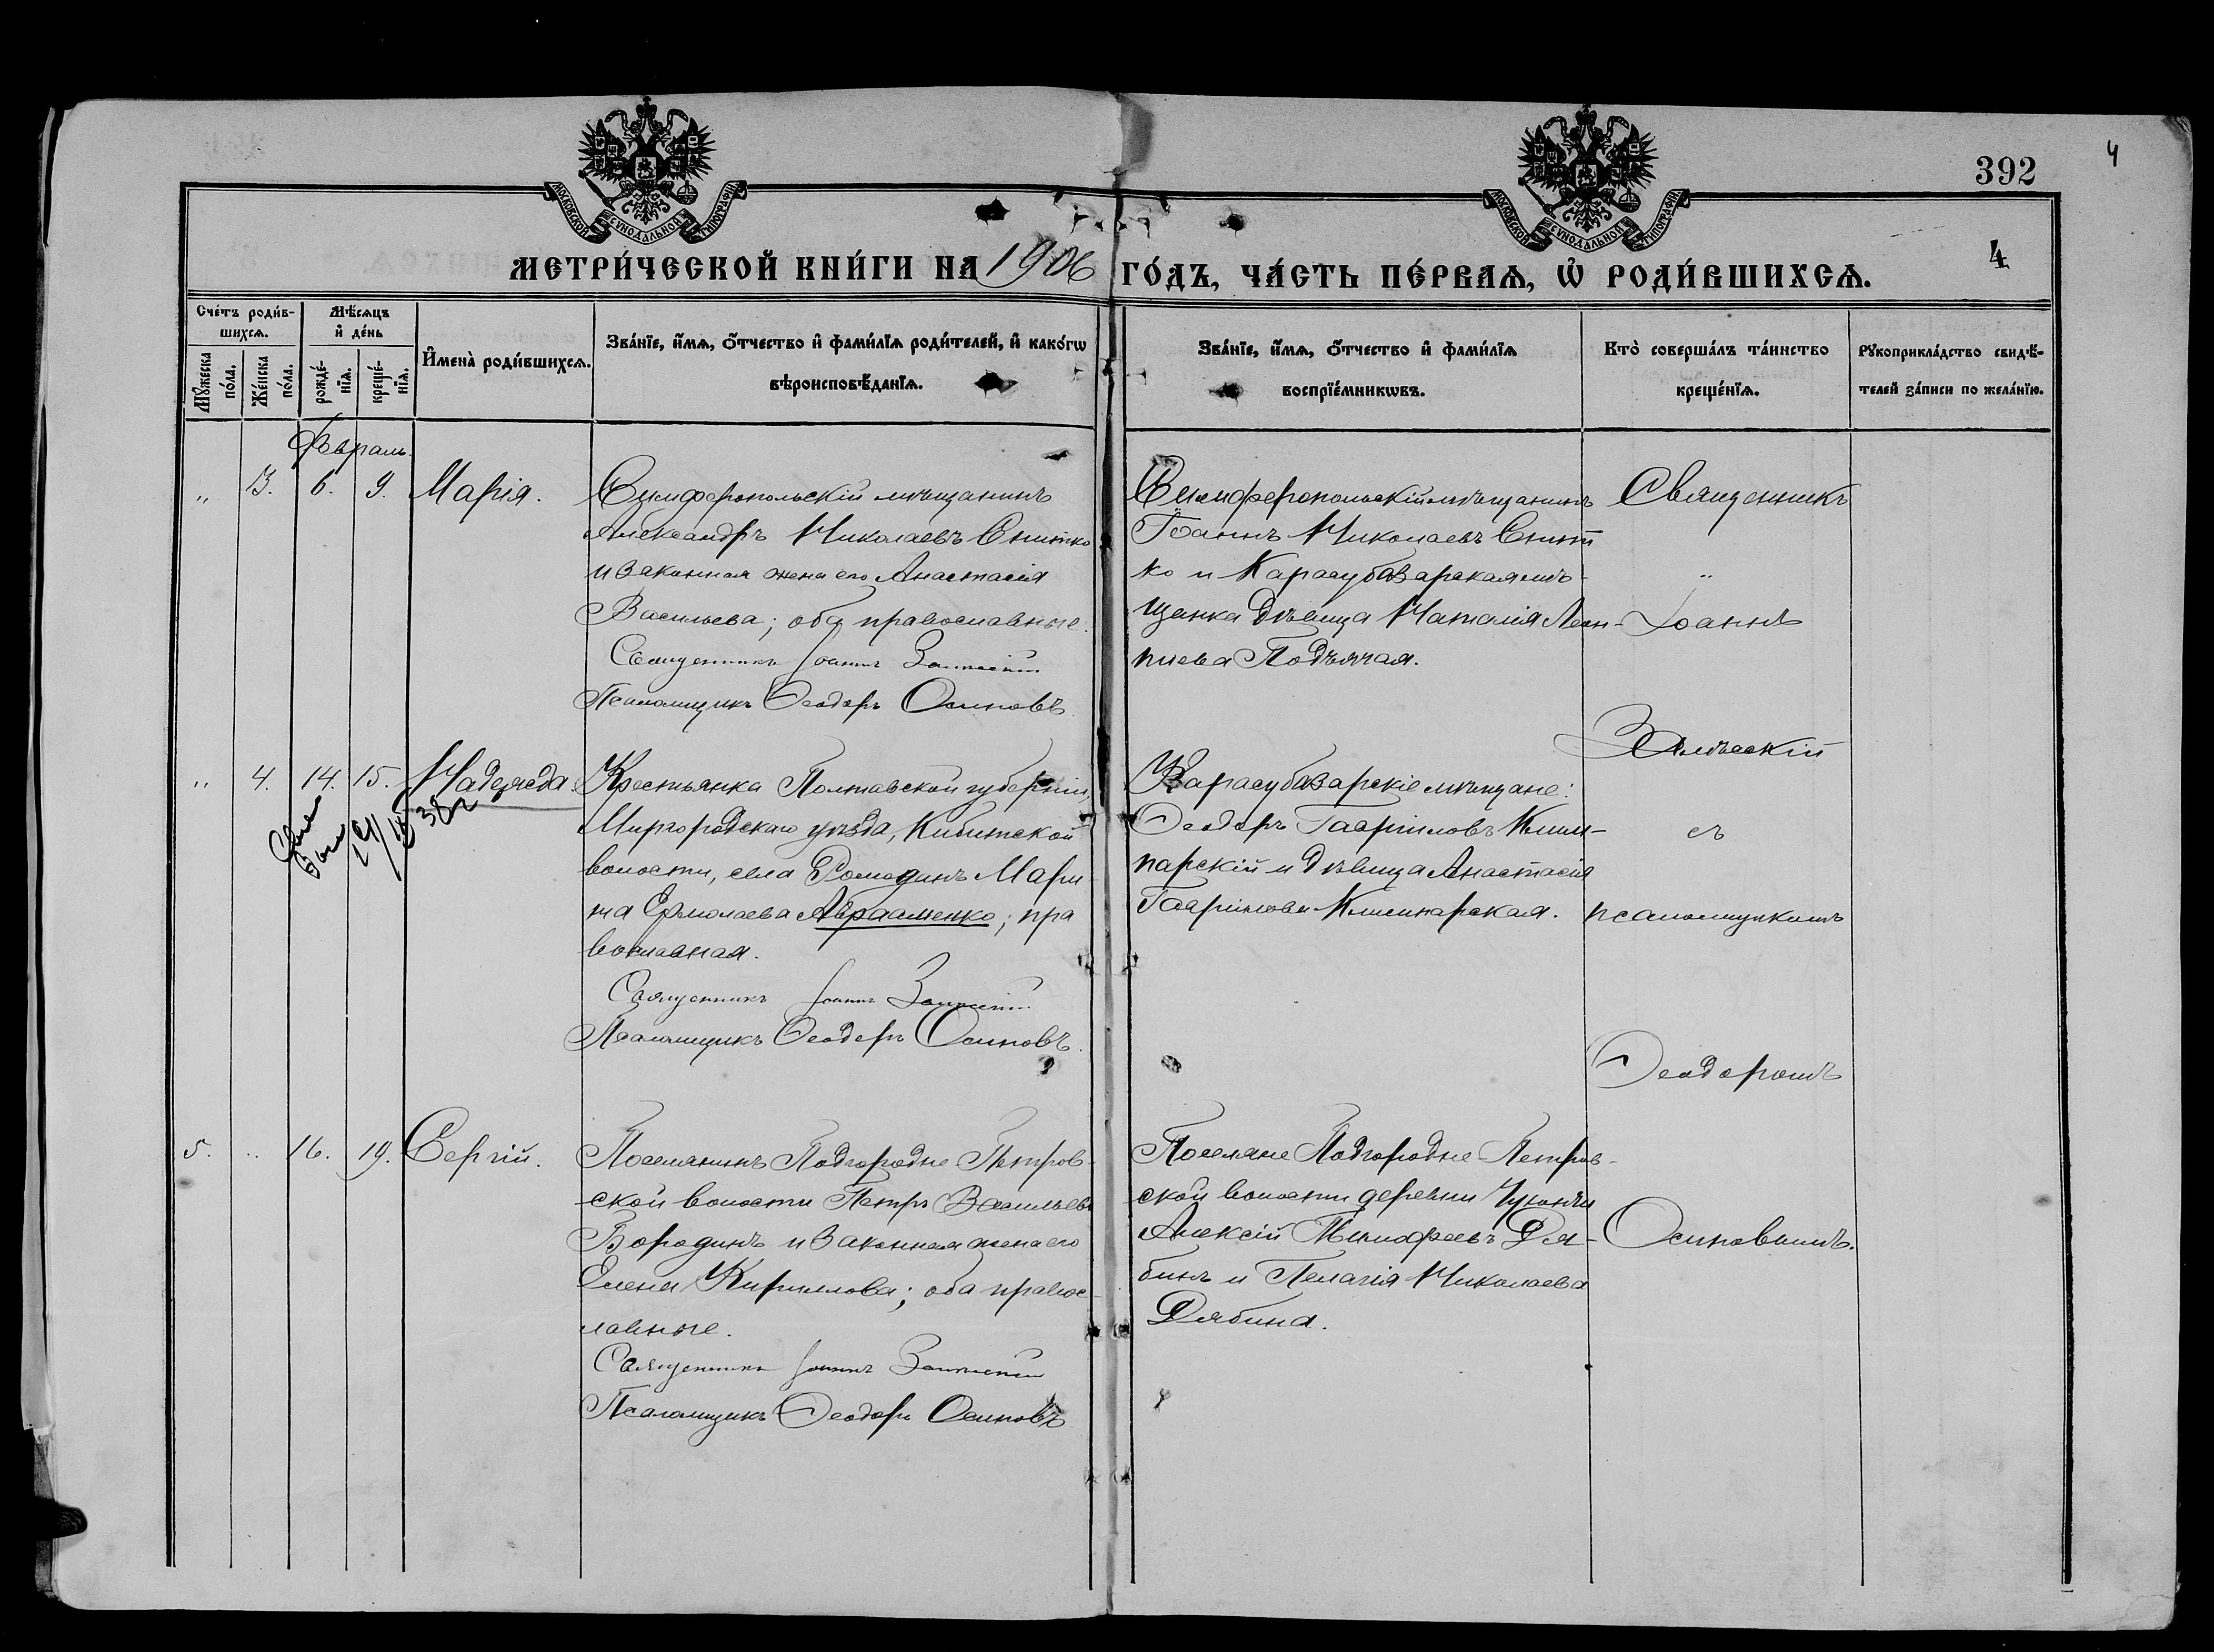 МОСКОВСКОЙ СѴНОДАЛЬНОЙ ТИПОГРАФІИ
МОСКОВСКОЙ СѴНОДАЛЬНОЙ ТИПОГРАФІИ
392
4
4
МЕТРИ́ЧЕСКОЙ КНИ́ГИ НА 1906 ГО́ДЪ, ЧА́СТЬ ПЕ́РВАѦ, Ѡ҆ РОДИ́ВШИХСѦ.
Сче́тъ роди́в-
шихсѧ.
Мꙋ́жеска по́ла.
Же́нска по́ла.
Мѣ́сѧцъ
и҆ де́нь
рожде́-
нїѧ.
креще́-
нїѧ.
И҆мена̀ роди́вшихсѧ.
Зва́нїе, и҆́мѧ, ѻ҆́тчество и҆ фами́лїѧ роди́телей, и҆ како́гѡ
вѣроисповѣ́данїѧ.
Зва́нїе, и҆́мѧ, ѻ҆́тчество и҆ фами́лїѧ
воспрїе́мникѡвъ.
Кто̀ соверша́лъ та́инство
креще́нїѧ.
Рꙋкоприкла́дство свидѣ́-
телей за́писи по жела́нїю.
Февраль.
" 3. 6. 9. Марія.
Симферопольскій мѣщанинъ
Александръ Николаевъ Снитко
и законная жена его Анастасія
Васильева; оба православные.
Священникъ Іоаннъ
Псаломщикъ Ѳеодоръ Осиповъ
Симферопольскій мѣщанинъ
Іоаннъ Николаевъ Снит
ко и Карасубазарская мѣ-
щанка дѣвица Наталія Леон-
тиева Подъячая.
Священникъ
"
Іоаннъ
" 4. 14. 15. Надежда
38 г
Крестьянка Полтавской губерніи,
Миргородскаго уѣзда, Кибитской
волости, села Ромоданъ Мари
на Ермолаева Авраменко; пра
вославная.
Священникъ Іоаннъ
Псаломщикъ Ѳеодоръ Осиповъ.
Карасубазарскіе мѣщане:
Ѳеодоръ Гавріиловъ Клим-
парскій и дѣвица Анастасія
Гавріилова Климпарская.
съ
псаломщикомъ
Ѳеодоромъ
5. " 16. 19. Сергій.
Поселянинъ Подгородне-Петров-
ской волости Петръ Васильевъ
Бородинъ и законная жена его
Елена Кириллова; оба правос-
лавные.
Священникъ Іоаннъ
Псаломщикъ Ѳеодоръ Осиповъ
Поселяне Подгородне-Петров-
ской волости деревни
Алексій Тимофеевъ Дя-
бинъ и Пелагія Николаева
Дябина.
Осиповымъ.